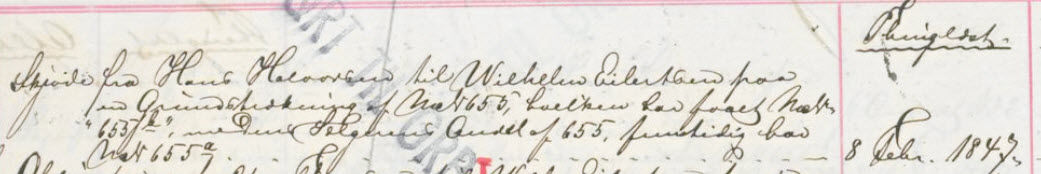 Thinglæst.
Skjøde fra Hans Halvorsen til Wilhelm Eilertsen paa
en Grundstrækning af No 655, hvilken har faaet No
"655 b", medens Sælgerens Andel af 655, fremtidig har
No 655 a
8 Febr. 1847.